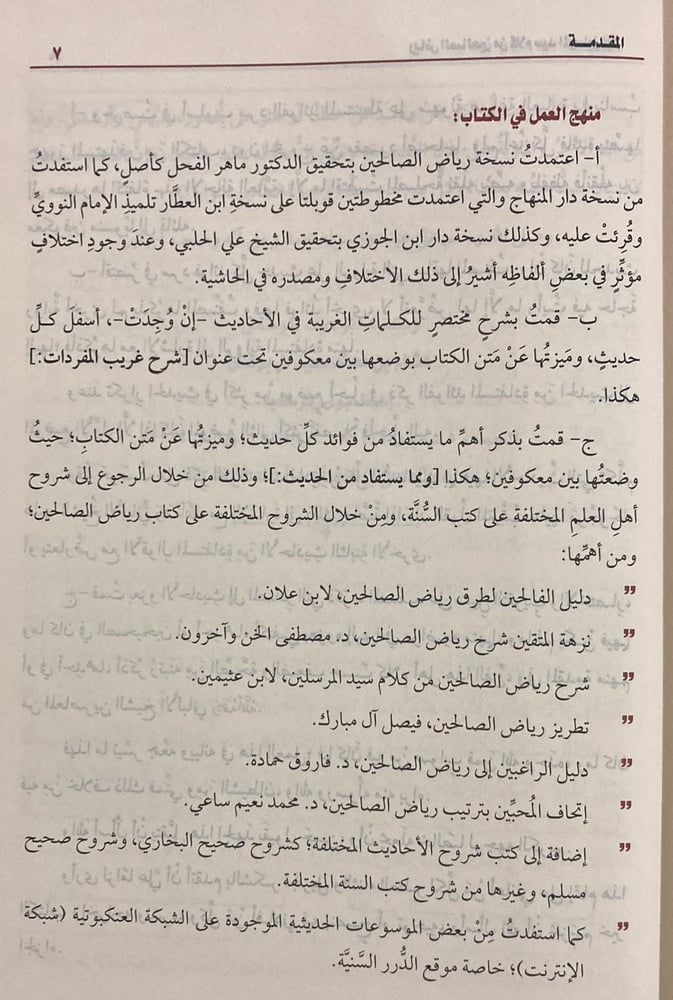 المقدمـــة
٧
منهج العمل في الكتاب:
أ- اعتمدتُ نسخة رياض الصالحين بتحقيق الدكتور ماهر الفحل كأصل، كما استفدتُ
من نسخة دار المنهاج والتي اعتمدت مخطوطتين قوبلتا على نسخةِ ابن العطَّار تلميذِ الإمام النوويِّ
وقُرِئتْ عليه، وكذلك نسخة دار ابن الجوزي بتحقيق الشيخ علي الحلبي، وعندَ وجودِ اختلافٍ
مؤثِّرٍ في بعضِ ألفاظِه أشيرُ إلى ذلك الاختلافِ ومصدره في الحاشية.
ب- قمتُ بشرحٍ مختصرٍ للكلماتِ الغريبة في الأحاديث -إنْ وُجِدَتْ-، أسفلَ كلِّ
حديثٍ، ومَيزتُها عَنْ مَتن الكتاب بوضعها بين معكوفين تحت عنوان [شرح غريب المفردات:]
هكذا.
ج- قمتُ بذكر أهمِّ ما يستفادُ من فوائد كلِّ حديث؛ وميزتُها عَنْ مَتن الكتابِ؛ حيثُ
وضعتُها بين معكوفين؛ هكذا [ومما يستفاد من الحديث:]؛ وذلك من خلال الرجوع إلى شروح
أهلِ العلمِ المختلفة على كتب السُّنَّة، ومِنْ خلال الشروح المختلفة على كتاب رياض الصالحين؛
ومن أهمِّها:
" دليل الفالحين لطرق رياض الصالحين، لابن علان.
" نزهة المتقين شرح رياض الصالحين، د. مصطفى الخن وآخرون.
" شرح رياض الصالحين من كلام سيد المرسلين، لابن عثيمين.
" تطريز رياض الصالحين، فيصل آل مبارك.
" دليل الراغبين إلى رياض الصالحين، د. فاروق حمادة.
" إتحاف المُحبِّين بترتيب رياض الصالحين، د. محمد نعيم ساعي.
" إضافة إلى كتب شروح الأحاديث المختلفة؛ كشروح صحيح البخاري، وشروح صحيح
مسلم، وغيرها من شروح كتب السنة المختلفة.
" كما استفدتُ مِنْ بعض الموسوعات الحديثية الموجودة على الشبكة العنكبوتية (شبكة
الإنترنت)؛ خاصة موقع الدُّرر السَّنيَّة.